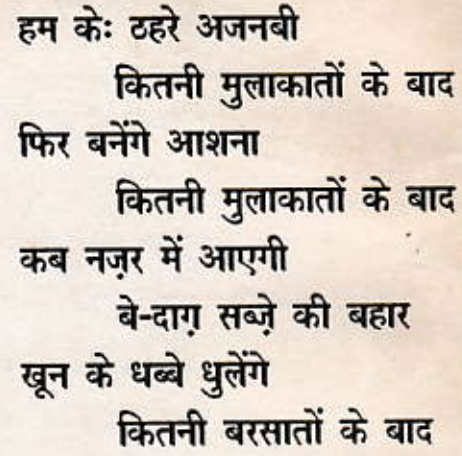 हम केः ठहरे अजनबी
कितनी मुलाकातों के बाद
फिर बनेंगे आशना
कितनी मुलाकातों के बाद
कब नज़र में आएगी
बे-दाग़ सब्ज़े की बहार
खून के धब्बे धुलेंगे
कितनी बरसातों के बाद